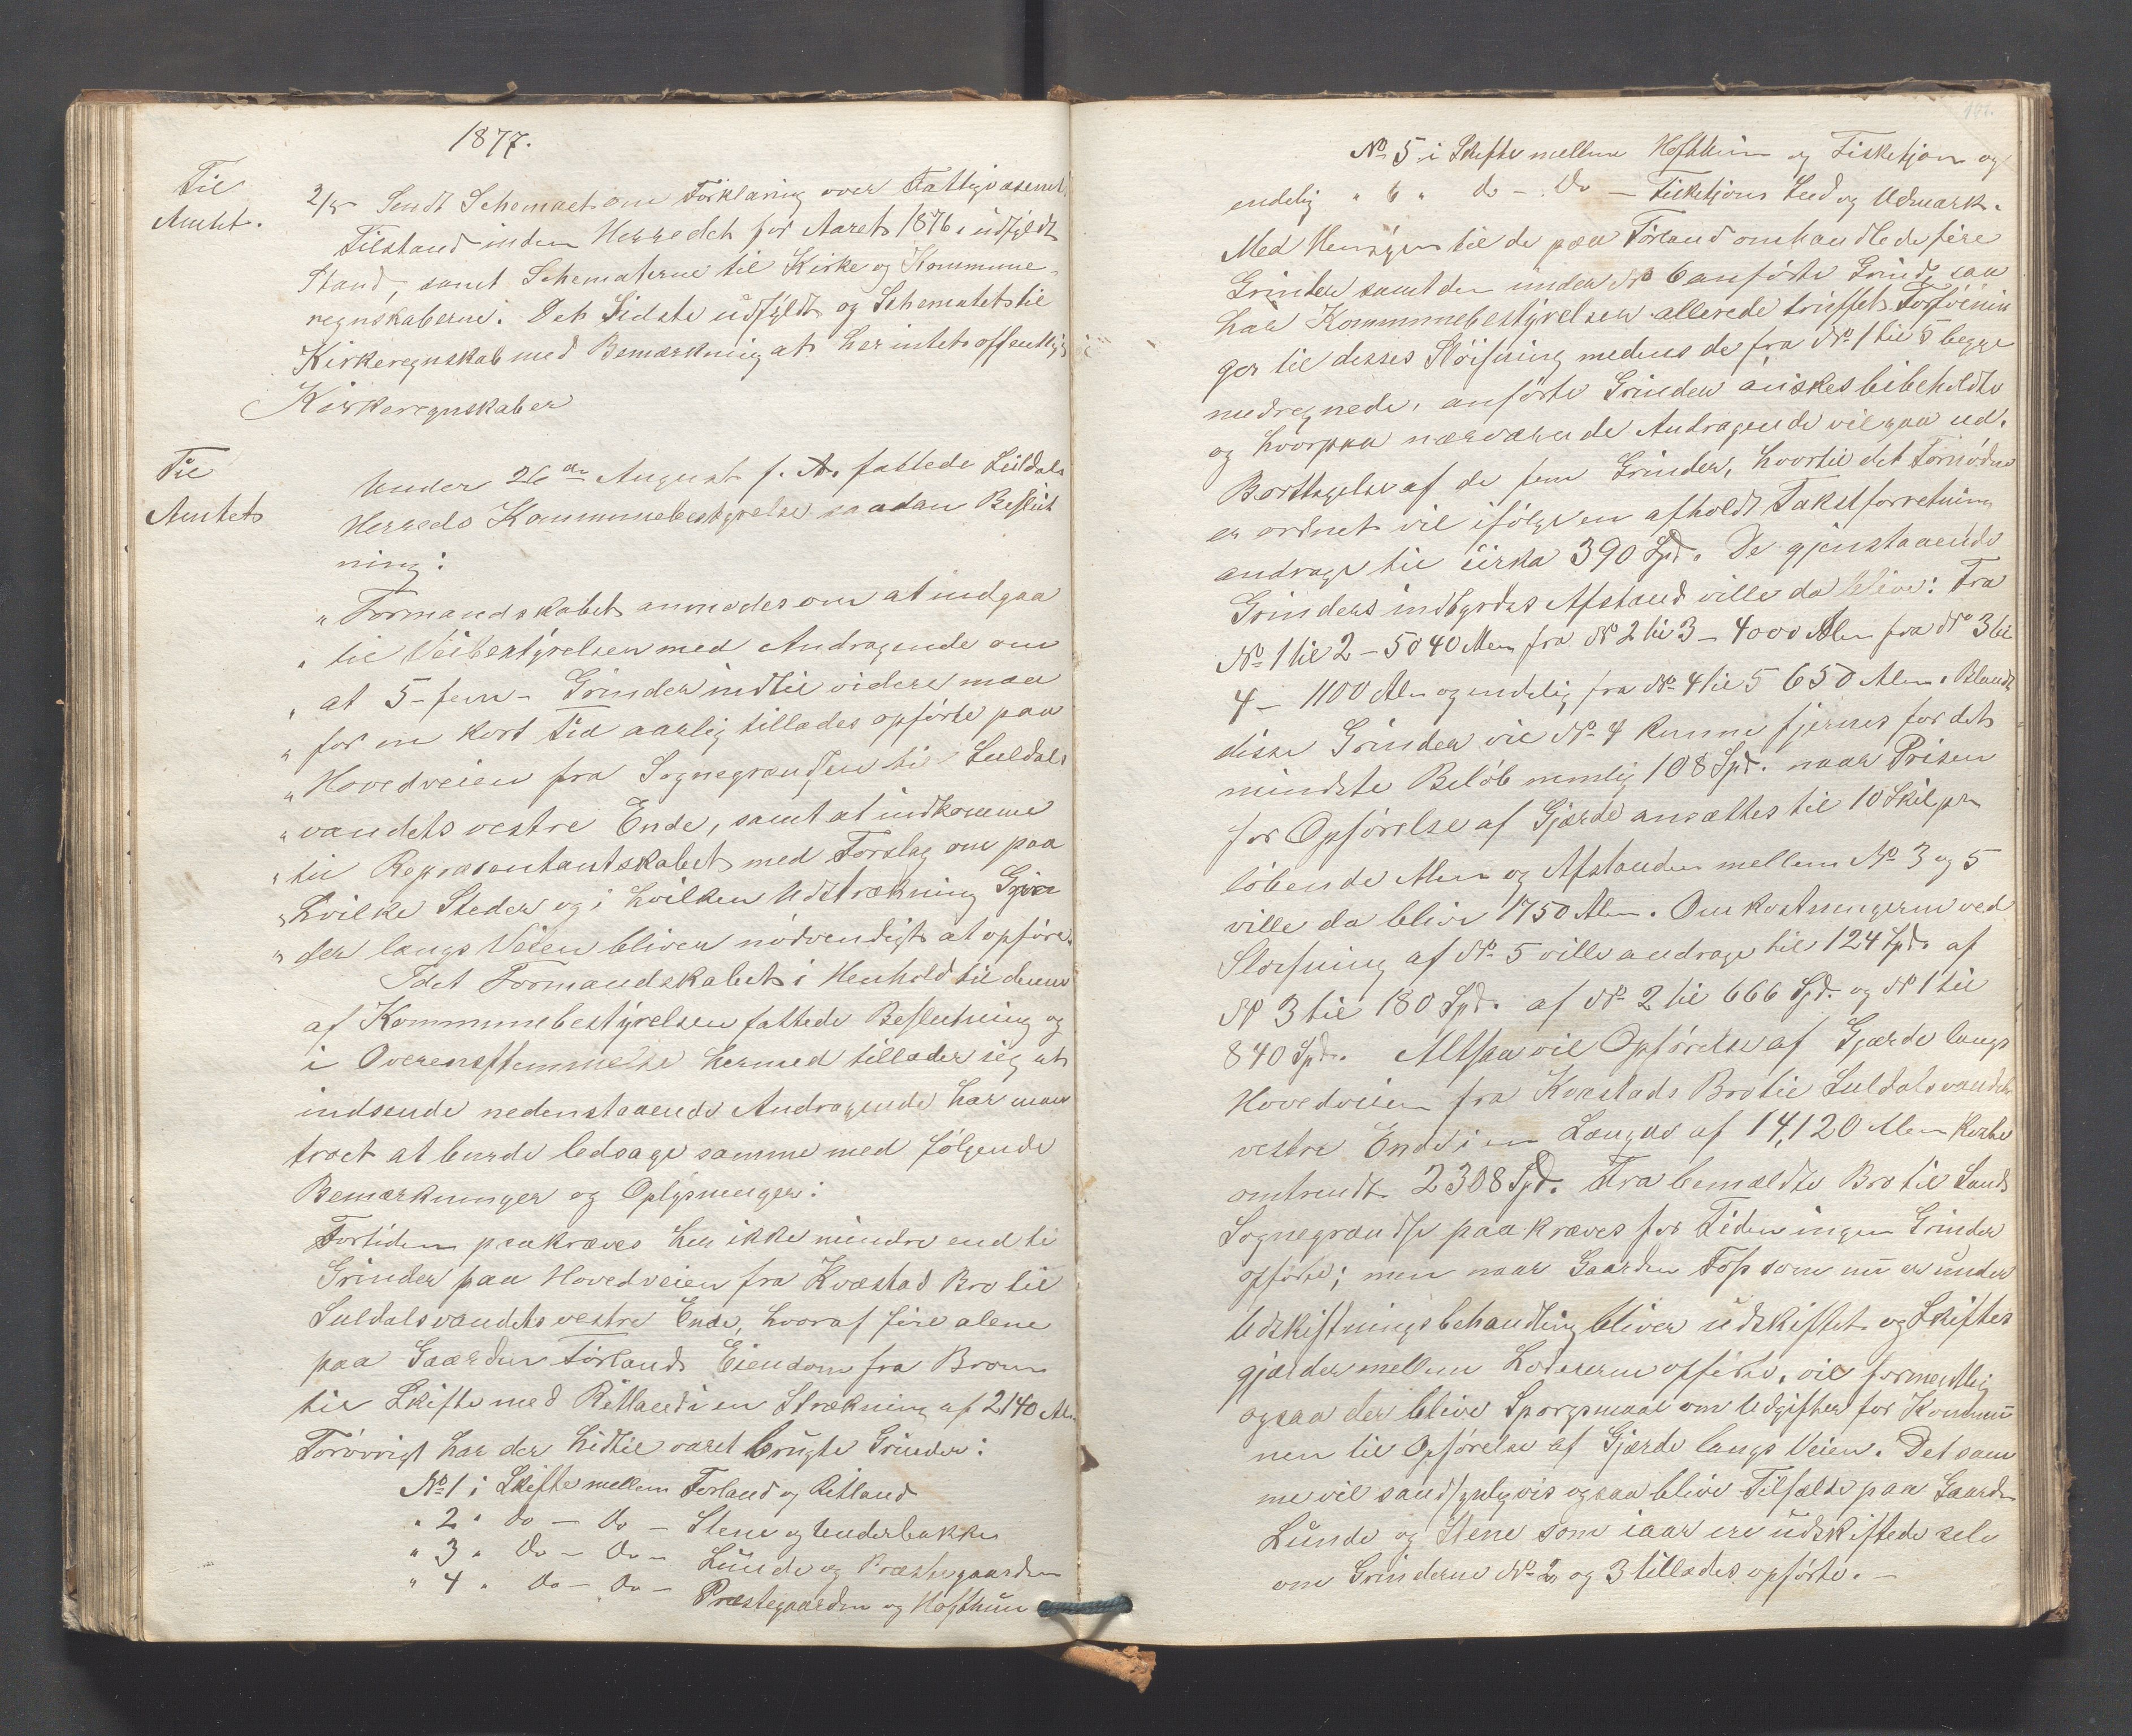 1877.
Til
Amtet.
2/5 Sendt Schemaet om Forklaring over Fattigvæsenets
Tilstand inden Herredet for Aaret 1876 i udfyldt
Stand, samt Schematerne til Kirke og Kommune-
regnskaberne. Det Sidste udfyldt og Schematet til
Kirkeregnskab med Bemærkning at her intet offentligt
Kirkeregnskaber
Til
Amtets
Under 26de August f. A. fattede Suldals
Herreds Kommunebestyrelse saadan Beslut
ning:
„Formandskabet anmodes om at indgaa
„ til Veibestyrelsen med Andragende om
„ at 5 - fem - Grinder indtil videre maa
„ for en kort Tid aarlig tillades opførte paa
„ Hovedveien fra Sognegrændsen til Suldals
„ vandets vestre Ende, samt at indkomme
„ til Repræsentantskabet med Forslag om paa
„ hvilke Steder og i hvilken Udstrækning Gjær
„ der langs Veien bliver nødvendigt at opføre.
Idet Formandskabet i Henhold til denne
af Kommunebestyrelsen fattede Beslutning og
i Overensstemmelse hermed tillader sig at
indsende nedenstaaende Andragende har man
troet at burde ledsage samme med følgende
Bemærkninger og Oplysninger:
Fortiden paakræves her ikke mindre end ti
Grinder paa Hovedveien fra Kvæstad Bro til
Suldalsvandets vestre Ende, hvoraf fire alene
paa Gaarden Førlands Eiendom fra Broen
til Skifte med Ritland i en Strækning af 2140 Al.
Forøvrigt har der hidtil været brugte Grinder:
No 1 i Skifte mellem Førland og Ritland
„ 2 „ Do - Do - Stene og Underbakke
„ 3 „ Do - Do - Lunde og Præstegaarden
„ 4 „ Do - Do - Præstegaarden og Hofthun
No 5 i Skifte mellem Hofthun og Fisketjøn og
endelig „ 6 „ do - Do - Fisketjøns Led og Udmark.
Med Hensyn til de paa Førland omhandlede fire
Grinder samt den under No 6 anførte Grind, saa
har Kommunebestyrelsen allerede truffet Forføinin
ger til desses Sløifning medens de fra No 1 til 5 begge
medregnede, anførte Grinder ønskes bibeholdte
og hvorpaa nærværende Andragende vil gaa ud.
Borttagelse af de fem Grinder, hvortil det Fornødne
er ordnet vil ifølge en afholdt Takstforretning
andrage til cirka 390 Spd. De gjenstaaende
Grinders indbyrdes Afstand ville da blive: Fra
No 1 til 2 - 5040 Alen fra No 2 til 3 - 4000 Alen fra No 3 til
4 - 1100 Alen og endelig fra No 4 til 5 650 Alen. Blandt
disse Grinder vil No 4 kunne fjernes for det
mindste Beløb nemlig 108 Spd. naar Prisen
for Opførelse af Gjærde ansættes til 10 Skil pr
løbende Alen og Afstanden mellem No 3 og 5
ville da blive 1750 Alen. Omkostningerne ved
Sløifning af No 5 ville andrage til 124 Spd. af
No 3 til 180 Spd. af No 2 til 666 Spd. og No 1 til
840 Spd. Altsaa vil Opførelse af Gjærde langs
Hovedveien fra Kvæstads Bro til Suldalsvandets
vestre Ende i en Længde af 14,120 Alen koste
omtrendt 2308 Spd. Fra bemældte Bro til Sands
Sognegrændse paakræves for Tiden ingen Grinder
opførte; men naar Gaarden Fos som nu er under
Udskiftningsbehandling bliver udskiftet og Skiftes
gjærder mellem Lodderne opførte, vil formentlig
ogsaa der blive Spørgsmaal om Udgifter for Kommu
nen til Opførelse af Gjærde langs Veien. Det sam
me vil sandsynligvis ogsaa blive Tilfælde paa Gaarden
Lunde og Stene som iaar ere udskiftede selv
om Grinderne No 2 og 3 tillades opførte. -